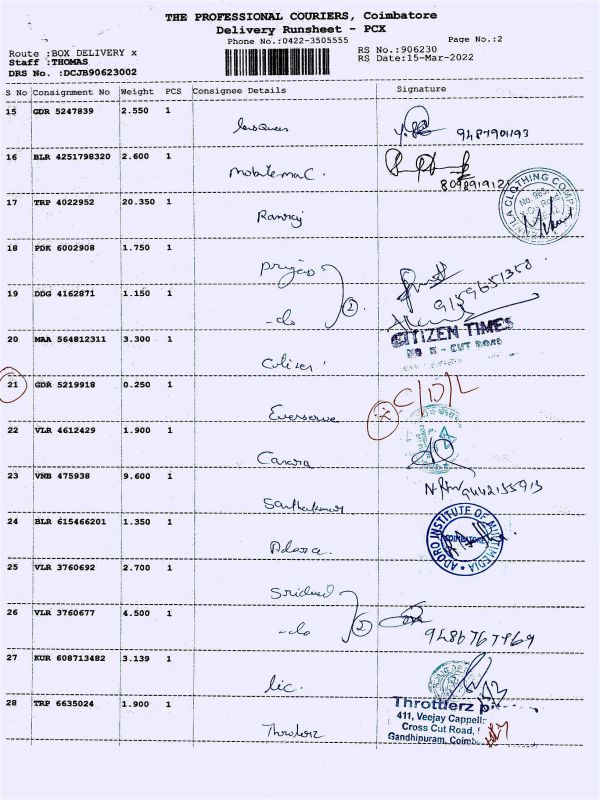 THE PROFESSIONAL COURIERS, Coimbatore
Delivery Runsheet - PCX
Phone No.:0422-3505555 Page No.:2
Route :BOX DELIVERY x RS No.:906230
Staff :THOMAS RS Date:15-Mar-2022
DRS No. :DCJB90623002
S No Consignment No Weight PCS Consignee Details Signature
15 GDR 5247839 2.550 1
9487901193
16 BLR 4251798320 2.600 1
17 TRP 4022952 20.350 1
18 PDK 6002908 1.750 1
19 DDG 4162871 1.150 1
2
9159651358
-do
20 MAA 564812311 3.300 1
CITIZEN TIMES
Citizen
21 GDR 5219918 0.250 1
C/D/L
Everserve
22 VLR 4612429 1.900 1
Canara
23 VNB 475938 9.600 1
Santhakumar
24 BLR 615466201 1.350 1
ADORO INSTITUTE OF MULTIMEDIA
COIMBATORE
25 VLR 3760692 2.700 1
26 VLR 3760677 4.500 1
2
-do
27 KUR 608713482 3.139 1
lic.
28 TRP 6635024 1.900 1
Throttlerz
411, Veejay Cappell
Cross Cut Road,
Gandhipuram, Coimb